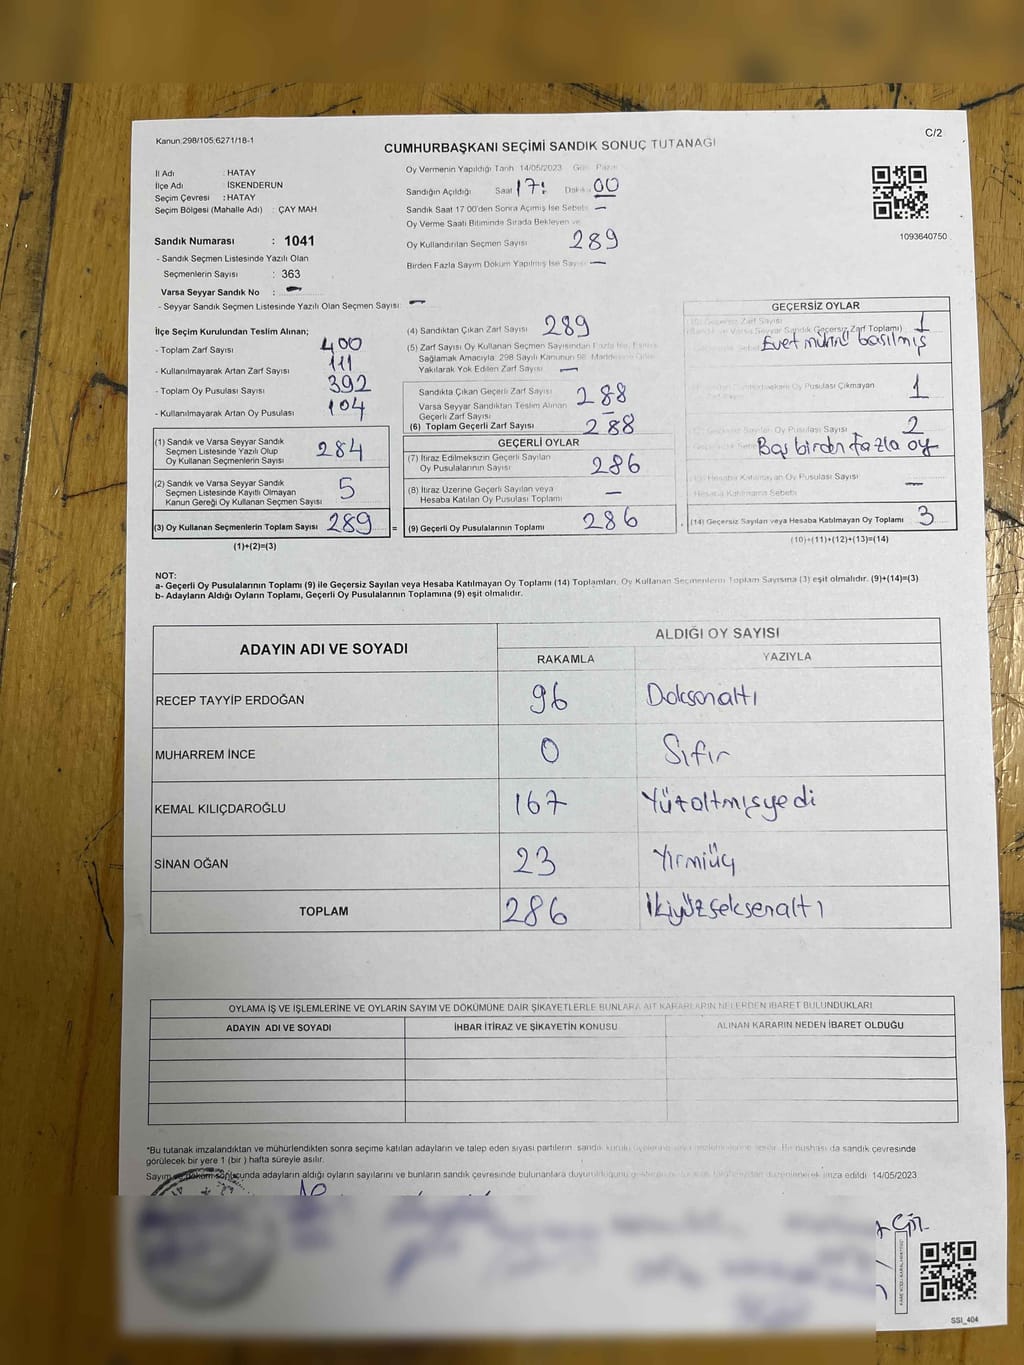 Kanun:298/105;6271/18-1
C/2
CUMHURBAŞKANI SEÇİMİ SANDIK SONUÇ TUTANAĞI
İl Adı : HATAY
İlçe Adı : İSKENDERUN
Seçim Çevresi : HATAY
Seçim Bölgesi (Mahalle Adı) : ÇAY MAH
Sandık Numarası : 1041
- Sandık Seçmen Listesinde Yazılı Olan
Seçmenlerin Sayısı : 363
Varsa Seyyar Sandık No : -
- Seyyar Sandık Seçmen Listesinde Yazılı Olan Seçmen Sayısı: -
Oy Vermenin Yapıldığı Tarih 14/05/2023 Gün Pazar
Sandığın Açıldığı Saat 17: Dakika 00
Sandık Saat 17:00'den Sonra Açımış İse Sebebi -
Oy Verme Saati Bitiminde Sırada Bekleyen ve
Oy Kullandırılan Seçmen Sayısı 289
Birden Fazla Sayım Döküm Yapılmış İse Sayısı -
1093640750
İlçe Seçim Kurulundan Teslim Alınan;
- Toplam Zarf Sayısı 400
- Kullanılmayarak Artan Zarf Sayısı 111
- Toplam Oy Pusulası Sayısı 392
- Kullanılmayarak Artan Oy Pusulası 104
(1) Sandık ve Varsa Seyyar Sandık
Seçmen Listesinde Yazılı Olup
Oy Kullanan Seçmenlerin Sayısı 284
(2) Sandık ve Varsa Seyyar Sandık
Seçmen Listesinde Kayıtlı Olmayan
Kanun Gereği Oy Kullanan Seçmen Sayısı 5
(3) Oy Kullanan Seçmenlerin Toplam Sayısı 289 =
(1)+(2)=(3)
(4) Sandıktan Çıkan Zarf Sayısı 289
(5) Zarf Sayısı Oy Kullanan Seçmen Sayısından Fazla İse,
Sağlamak Amacıyla 298 Sayılı Kanunun 98. Maddesine Göre
Yakılarak Yok Edilen Zarf Sayısı -
Sandıkta Çıkan Geçerli Zarf Sayısı 288
Varsa Seyyar Sandıktan Teslim Alınan
Geçerli Zarf Sayısı -
(6) Toplam Geçerli Zarf Sayısı 288
GEÇERLİ OYLAR
(7) İtiraz Edilmeksizin Geçerli Sayılan
Oy Pusulalarının Sayısı 286
(8) İtiraz Üzerine Geçerli Sayılan veya
Hesaba Katılan Oy Pusulası Toplamı -
(9) Geçerli Oy Pusulalarının Toplamı 286
GEÇERSİZ OYLAR
(10) Geçersiz Zarf Sayısı
(Sandık ve Varsa Seyyar Sandık Geçersiz Zarf Toplamı) 1
Evet mührü basılmış
Oy Pusulası Çıkmayan
1
Oy Pusulası Sayısı 2
Baş birden fazla oy
Hesaba Katılmayan Oy Pusulası Sayısı -
Hesaba Katılmama Sebebi
(14) Geçersiz Sayılan veya Hesaba Katılmayan Oy Toplamı 3
(10)+(11)+(12)+(13)=(14)
NOT:
a- Geçerli Oy Pusulalarının Toplamı (9) ile Geçersiz Sayılan veya Hesaba Katılmayan Oy Toplamı (14) Toplamları, Oy Kullanan Seçmenlerin Toplam Sayısına (3) eşit olmalıdır. (9)+(14)=(3)
b- Adayların Aldığı Oyların Toplamı, Geçerli Oy Pusulalarının Toplamına (9) eşit olmalıdır.
ADAYIN ADI VE SOYADI
ALDIĞI OY SAYISI
RAKAMLA YAZIYLA
RECEP TAYYİP ERDOĞAN 96 Doksanaltı
MUHARREM İNCE 0 Sıfır
KEMAL KILIÇDAROĞLU 167 Yüzaltmışyedi
SİNAN OĞAN 23 Yirmiüç
TOPLAM 286 İkiyüzseksenaltı
OYLAMA İŞ VE İŞLEMLERİNE VE OYLARIN SAYIM VE DÖKÜMÜNE DAİR ŞİKAYETLERLE BUNLARA AİT KARARLARIN NELERDEN İBARET BULUNDUKLARI
ADAYIN ADI VE SOYADI İHBAR İTİRAZ VE ŞİKAYETİN KONUSU ALINAN KARARIN NEDEN İBARET OLDUĞU
*Bu tutanak imzalandıktan ve mühürlendikten sonra seçime katılan adayların ve talep eden siyasi partilerin sandık kurulu üyelerine Bir nüshası da sandık çevresinde
görülecek bir yere 1 (bir ) hafta süreyle asılır.
Sayım ve döküm sonucunda adayların aldığı oyların sayılarını ve bunların sandık çevresinde bulunanlara duyurulduğunu düzenlenerek imza edildi 14/05/2023
SSI_404